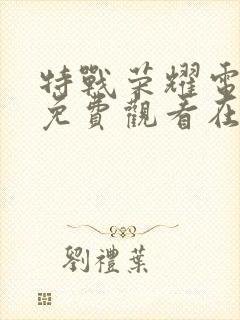 特戰荣耀電
免費觀看在
劉禮葉